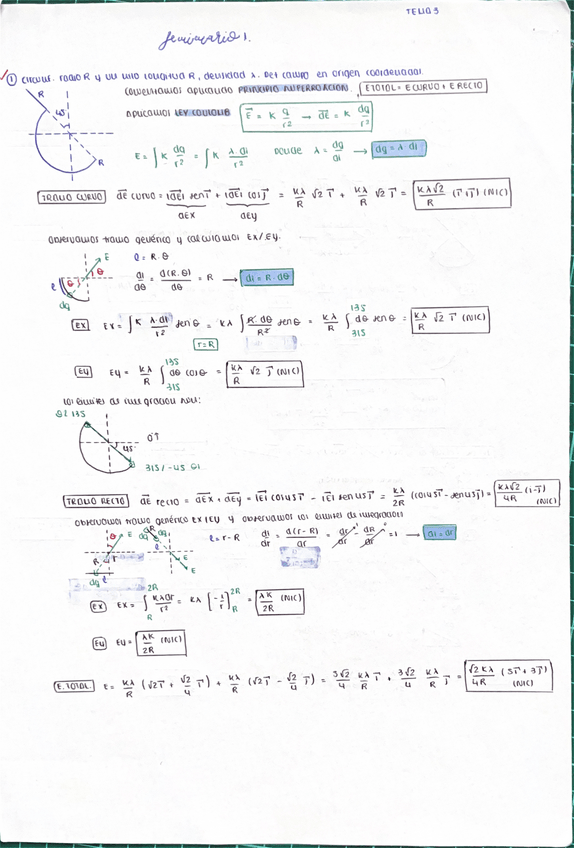 TEMA 3
Seminario 1.
① circunf. radio R y un hilo longitud R, densidad λ. Det campo en origen coordenadas.
R 45° R
Convenimos aplicando PRINCIPIO SUPERPOSICIÓN. E TOTAL = E CURVO + E RECTO
Aplicamos LEY COULOMB E⃗ = K q/r² → dE⃗ = K dq/r²
E = ∫ K dq/r² = ∫ K λ·dl/r² donde λ = dq/dl → dq = λ dl
TRAMO CURVO dE⃗ curvo = |dE| sen i⃗ + |dE| cos j⃗ = Kλ/R √2 i⃗ + Kλ/R √2 j⃗ = Kλ√2/R (i⃗+j⃗) (N/C)
dEx dEy
Observamos tramo genérico y calculamos Ex/Ey.
E θ θ l dq
l = R·θ
dl/dθ = d(R·θ)/dθ = R → dl = R·dθ
Ex Ex = ∫ K λ·dl/r² sen θ = Kλ ∫ R·dθ/R² sen θ = Kλ/R ∫ 135 315 dθ sen θ = Kλ/R √2 i⃗ (N/C)
r = R
Ey Ey = Kλ/R ∫ 135 315 dθ cos θ = Kλ/R √2 j⃗ (N/C)
Los límites de integración son:
135
45°
315/-45
TRAMO RECTO dE⃗ recto = dE⃗x + dE⃗y = |E| cos45 i⃗ - |E| sen45 j⃗ = Kλ/2R (cos45 i⃗ - sen45 j⃗) = Kλ√2/4R (i-j⃗) (N/C)
Observamos tramo genérico Ex/Ey y observamos los límites de integración
θ E R r dq l dR dq l E
l = r-R dl/dr = d(r-R)/dr = dr/dr - dR/dr = 1 → dl = dr
Ex Ex = ∫ 2R R Kλdr/r² = Kλ [-1/r] 2R R = λK/2R (N/C)
Ey Ey = λK/2R (N/C)
E. TOTAL. E = Kλ/R (√2 i⃗ + √2/4 i⃗) + Kλ/R (√2 j⃗ - √2/4 j⃗) = 5√2/4 Kλ/R i⃗ + 3√2/4 Kλ/R j⃗ = √2Kλ/4R (5i⃗ + 3j⃗) (N/C)